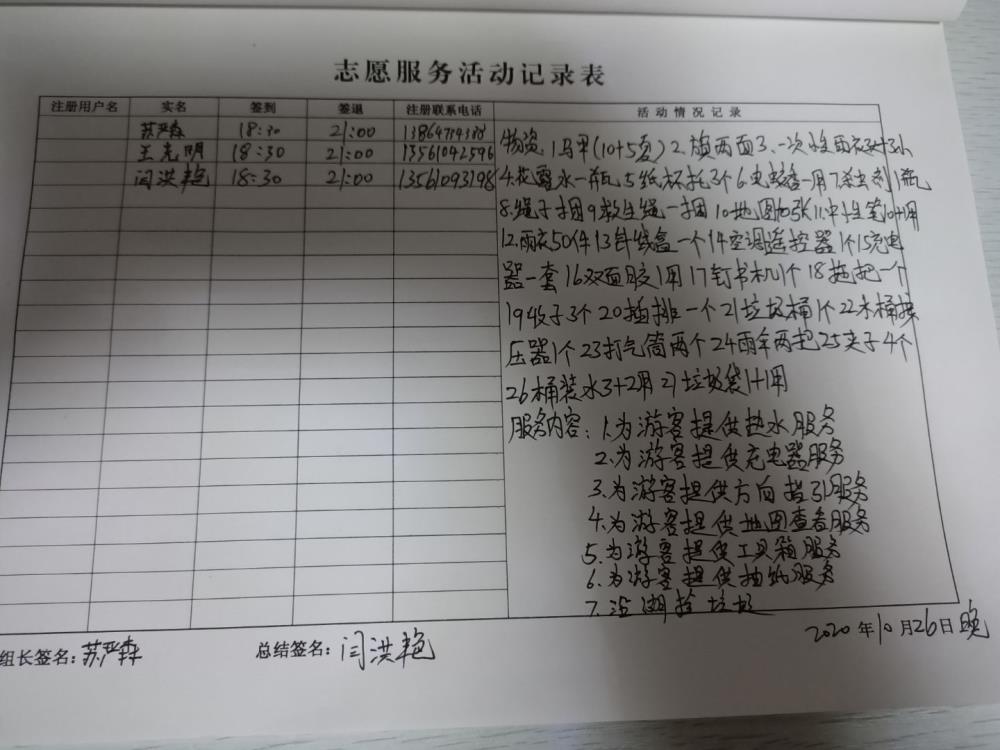 志愿服务活动记录表
注册用户名 实名 签到 签退 注册联系电话 活动情况记录
苏严森 18:30 21:00
王克明 18:30 21:00 13561042596
闫洪艳 18:30 21:00 13561093198
物资 1马甲(10+5夏) 2.旗两面 3.一次性雨衣
4.花露水一瓶 5纸杯托3个 6电蚊香一用 7杀虫剂1瓶
8.绳子1捆 9救生绳一捆 10地图 11.中性笔10+1用
12.雨衣50件 13针线盒一个 14空调遥控器1个 15充电
器一套 16双面胶1用 17钉书机1个 18拖把一个
19收子3个 20插排一个 21垃圾桶1个 22水桶按
压器1个 23打气筒两个 24雨伞两把 25夹子4个
26桶装水3+2用 27垃圾袋1+1用
服务内容: 1.为游客提供热水服务
2.为游客提供充电器服务
3.为游客提供方向指引服务
4.为游客提供地图查看服务
5.为游客提供工具箱服务
6.为游客提供抽纸服务
7.沿湖捡垃圾
组长签名:苏严森 总结签名:闫洪艳 2020年10月26日晚